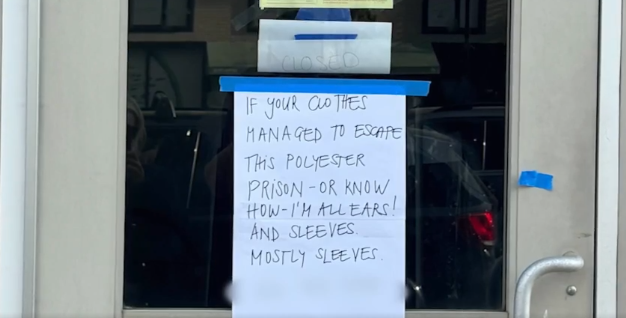 CLOSED
IF YOUR CLOTHES
MANAGED TO ESCAPE
THIS POLYESTER
PRISON-OR KNOW
HOW-I'M ALL EARS!
AND SLEEVES.
MOSTLY SLEEVES.